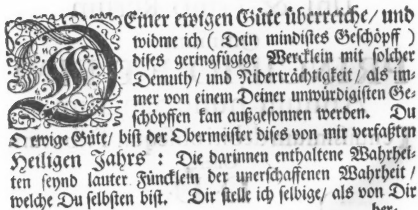 DEiner ewigen Güte überreiche/ und
widme ich ( Dein mindistes Geschöpff )
dises geringfügige Wercklein mit solcher
Demuth/ und Niderträchtigkeit/ als im-
mer von einem Deiner unwürdigisten Ge-
schöpffen kan außgesonnen werden. Du
O ewige Güte/ bist der Obermeister dises von mir verfaßten
Heiligen Jahrs : Die darinnen enthaltene Wahrhei-
ten seynd lauter Füncklein der unerschaffenen Wahrheit/
welche Du selbsten bist. Dir stelle ich selbige/ als von Dir
her-